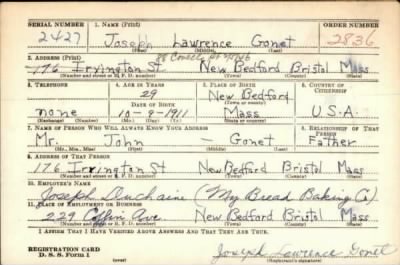 SERIAL NUMBER 1. NAME (Print) ORDER NUMBER
2427 Joseph Lawrence Gonet 2836
(First) (Middle) (Last)
2. ADDRESS (Print)
176 Irvington St New Bedford Bristol Mass
(Number and street or R. F. D. number) (Town) (County) (State)
3. TELEPHONE 4. AGE IN YEARS 5. PLACE OF BIRTH 6. COUNTRY OF CITIZENSHIP
29 New Bedford
DATE OF BIRTH (Town or county)
none 10-9-1911 Mass U.S.A.
(Exchange) (Number) (Mo.) (Day) (Yr.) (State or country)
7. NAME OF PERSON WHO WILL ALWAYS KNOW YOUR ADDRESS 8. RELATIONSHIP OF THAT PERSON
Mr. John - Gonet Father
(Mr., Mrs., Miss) (First) (Middle) (Last)
9. ADDRESS OF THAT PERSON
176 Irvington St New Bedford Bristol Mass
(Number and street or R. F. D. number) (Town) (County) (State)
10. EMPLOYER'S NAME
Joseph Duchaine (My Bread Baking Co)
11. PLACE OF EMPLOYMENT OR BUSINESS
229 Coffin Ave. New Bedford Bristol Mass
(Number and street or R. F. D. number) (Town) (County) (State)
I AFFIRM THAT I HAVE VERIFIED ABOVE ANSWERS AND THAT THEY ARE TRUE.
REGISTRATION CARD
D. S. S. Form 1 (over) Joseph Lawrence Gonet
(Registrant's signature)